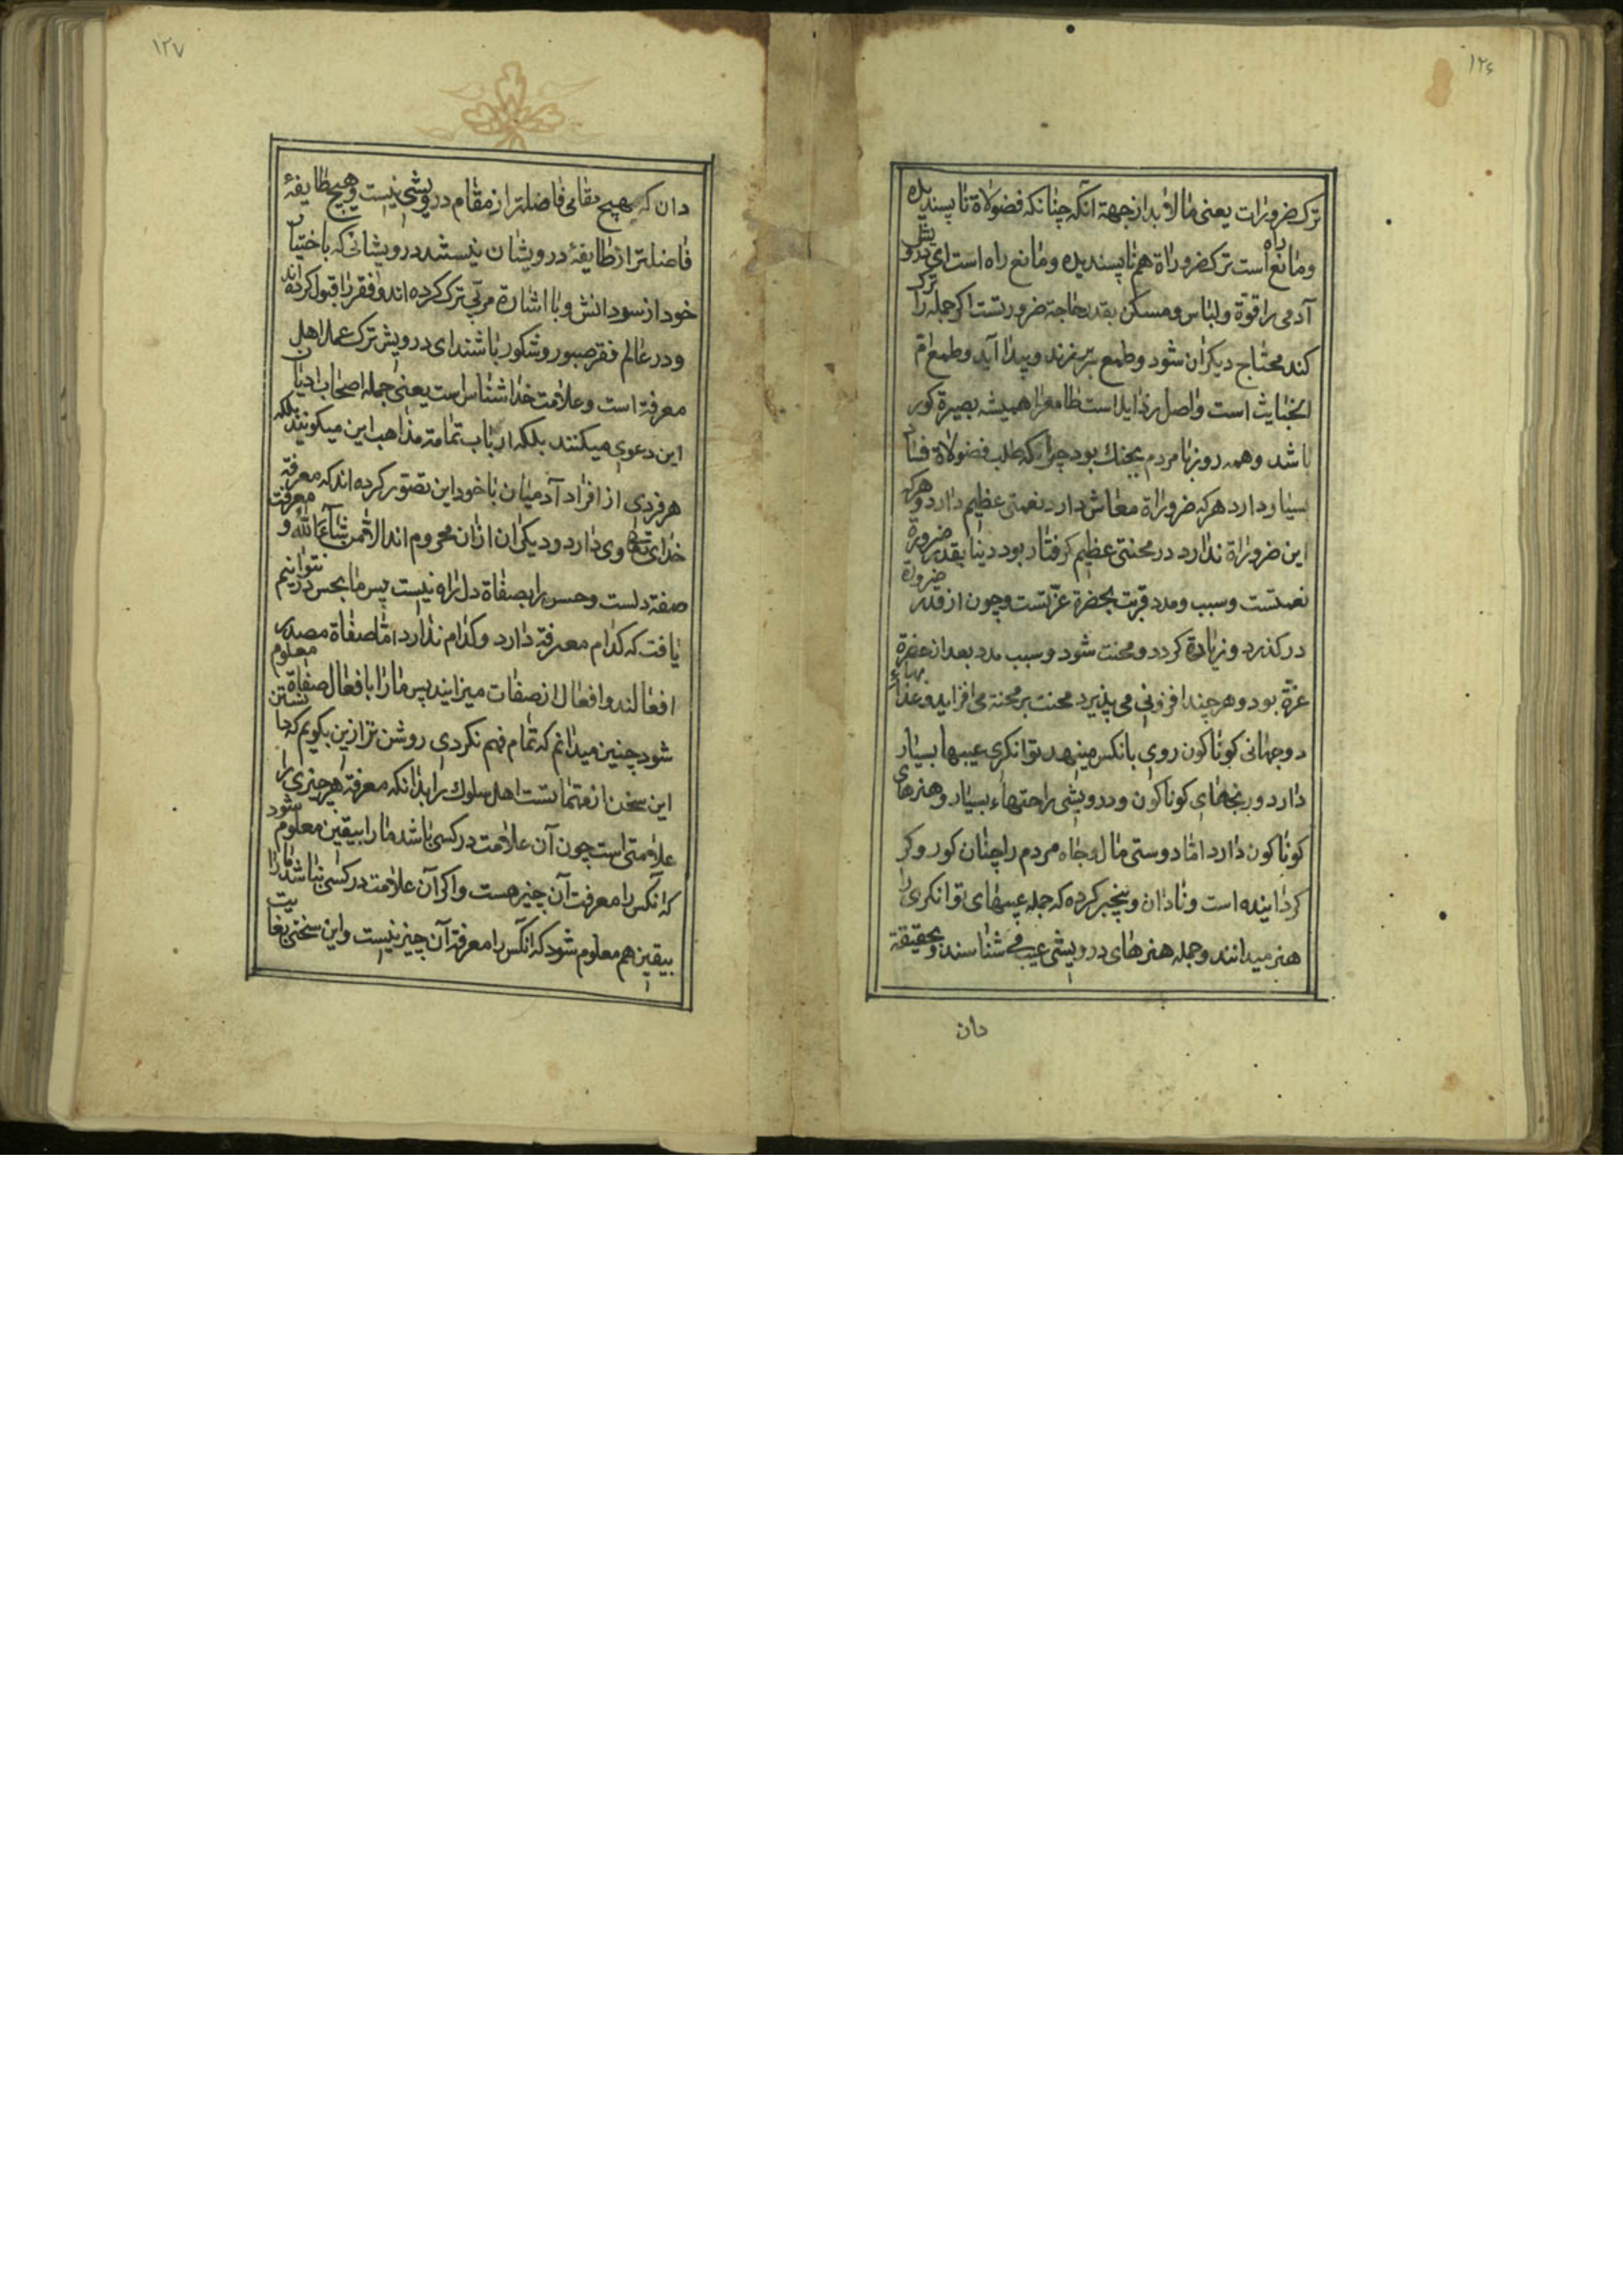 ۱۲۶
ترک ضرورات یعنی مالابد از جهة آنکه چنانکه فضولاة ناپسندیده
و مانع راه است ترک ضروراة هم ناپسندیده و مانع راه است ای درویش
آدمی را قوة و لباس و مسکن بقدر حاجة ضرورتست اکر جمله را ترک
کند محتاج دیکران شود و طمع سر برزند و پیدا آید و طمع ام
الخبایث است و اصل رذایل است طامع را همیشه بصیرة کور
باشد و همه روز با مردم بجنک بود چرا که طلب فضولاة فساد
بسیار دارد هرکه ضروراة معاش دارد نعمتی عظیم دارد و هرکه
این ضروراة ندارد در محنتی عظیم کرفتار بود دینا بقدر ضرورة
نعمتست و سبب و مدد قربت بحضرة عزتست و چون از قدر ضرورة
در کذرد و زیادة کردد و محنت شود و سبب مدد بعد از حضرة
عزة بود و هر چند افزونی می پذیرد محنت بر محنة می افزاید و عذابهاء
دوجهانی کوناکون روی بانکس مینهد توانکری عیبها بسیار
دارد و رنجهای کوناکون و درویشی راحتهاء بسیار و هنرهای
کوناکون دارد اما دوستی مال و جاه مردم را چنان کور و کر
کردانیده است و نادان و بیخبر کرده که جمله عیبهای توانکری را
هنر میدانند و جمله هنرهای درویشی عیب می شناسند و بحقیقة
دان
۱۲۷
دان که هیچ مقامی فاضلتر از مقام درویشی نیست و هیچ طایفهٔ
فاضلتر از طایفهٔ درویشان نیستند درویشانی که باختیار
خود از سر دانش و با اشارة مربی ترک کرده اند و فقر را قبول کرده اند
و در عالم فقر صبور و شکور باشند ای درویش ترک عمل اهل
معرفة است و علامت خدا شناس است یعنی جمله اصحاب ادیان
این دعوی میکنند بلکه ارباب تمامة مذاهب این میکویند بلکه
هر فردی از افراد آدمیان با خود این تصور کرده اند که معرفة
خدای تعالی وی دارد و دیکران ازان محروم اند الا من شآء الله و معرفت
صفة دلست و حس را بصفاة دل راه نیست پس ما بحس در نتوانیم
یافت که کدام معرفة دارد و کدام ندارد اما صفاة مصدر
افعالند و افعال از صفات میزایند پس ما را بافعال صفاة معلوم
شود چنین میدانم که تمام فهم نکردی روشن تر ازین بکویم که دانستن
این سخن از مهماتست اهل سلوک را بدانکه معرفة هر چیزی را
علامتی است چون آن علامت در کسی باشد ما را بیقین معلوم شود
که آنکس را معرفت آن چیز هست و اکر آن علامت در کسی نباشد ما را
بیقین هم معلوم شود که آنکس را معرفة آن چیز نیست و این سخنی بغایت